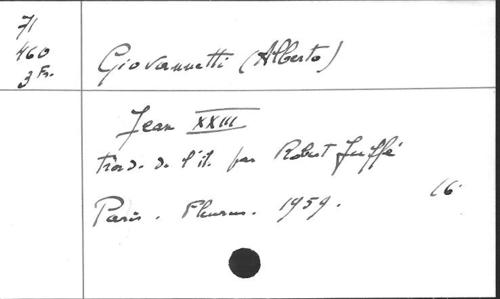 71
460
3 Fr.
Giovannetti (Alberto)
Jean XXIII
trad. de l'it. par Robert Juffé
Paris. Fleurus. 1959.
16